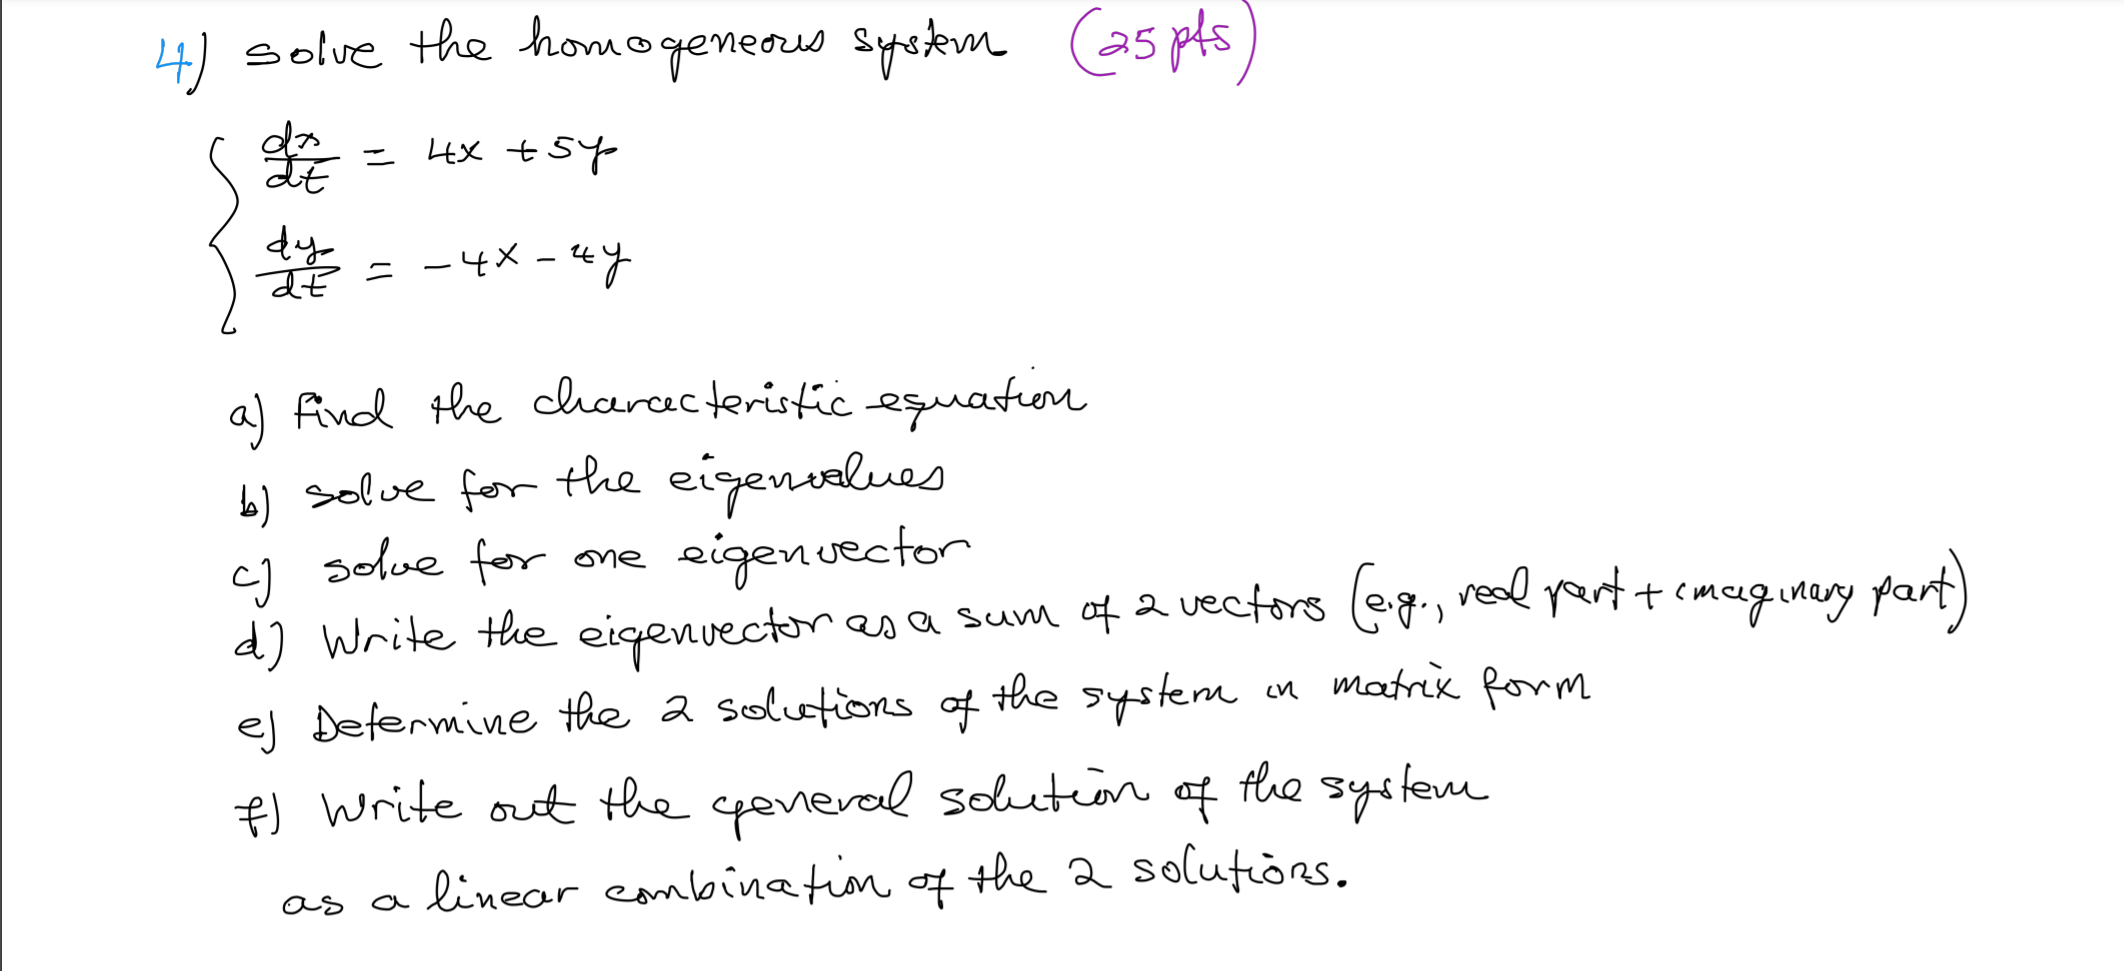 4) solve the homogeneous system (25 pts)
dx/dt = 4x + 5y
dy/dt = -4x - 4y
a) find the characteristic equation
b) solve for the eigenvalues
c) solve for one eigenvector
d) Write the eigenvector as a sum of 2 vectors (e.g., real part + imaginary part)
e) Determine the 2 solutions of the system in matrix form
f) Write out the general solution of the system
as a linear combination of the 2 solutions.